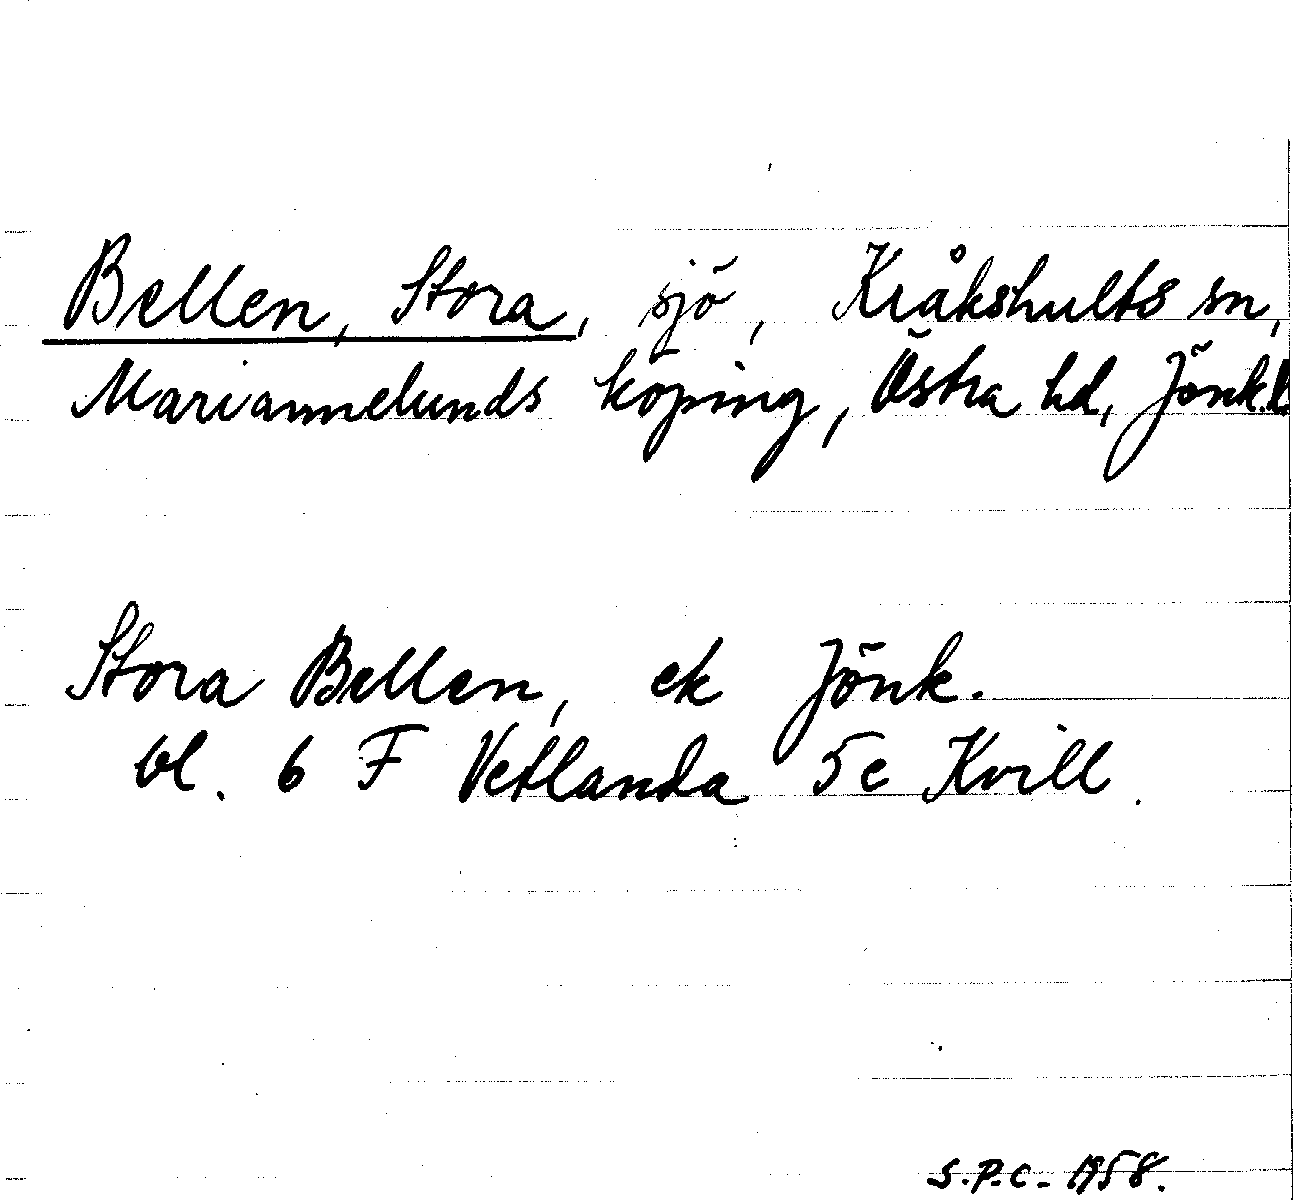 Bellen, Stora, sjö, Kråkshults sn,
Mariannelunds köping, Östra hd, Jönk.l.
Stora Bellen, ek Jönk.
bl. 6 F Vetlanda 5c Kvill.
S.P.C. 1958.